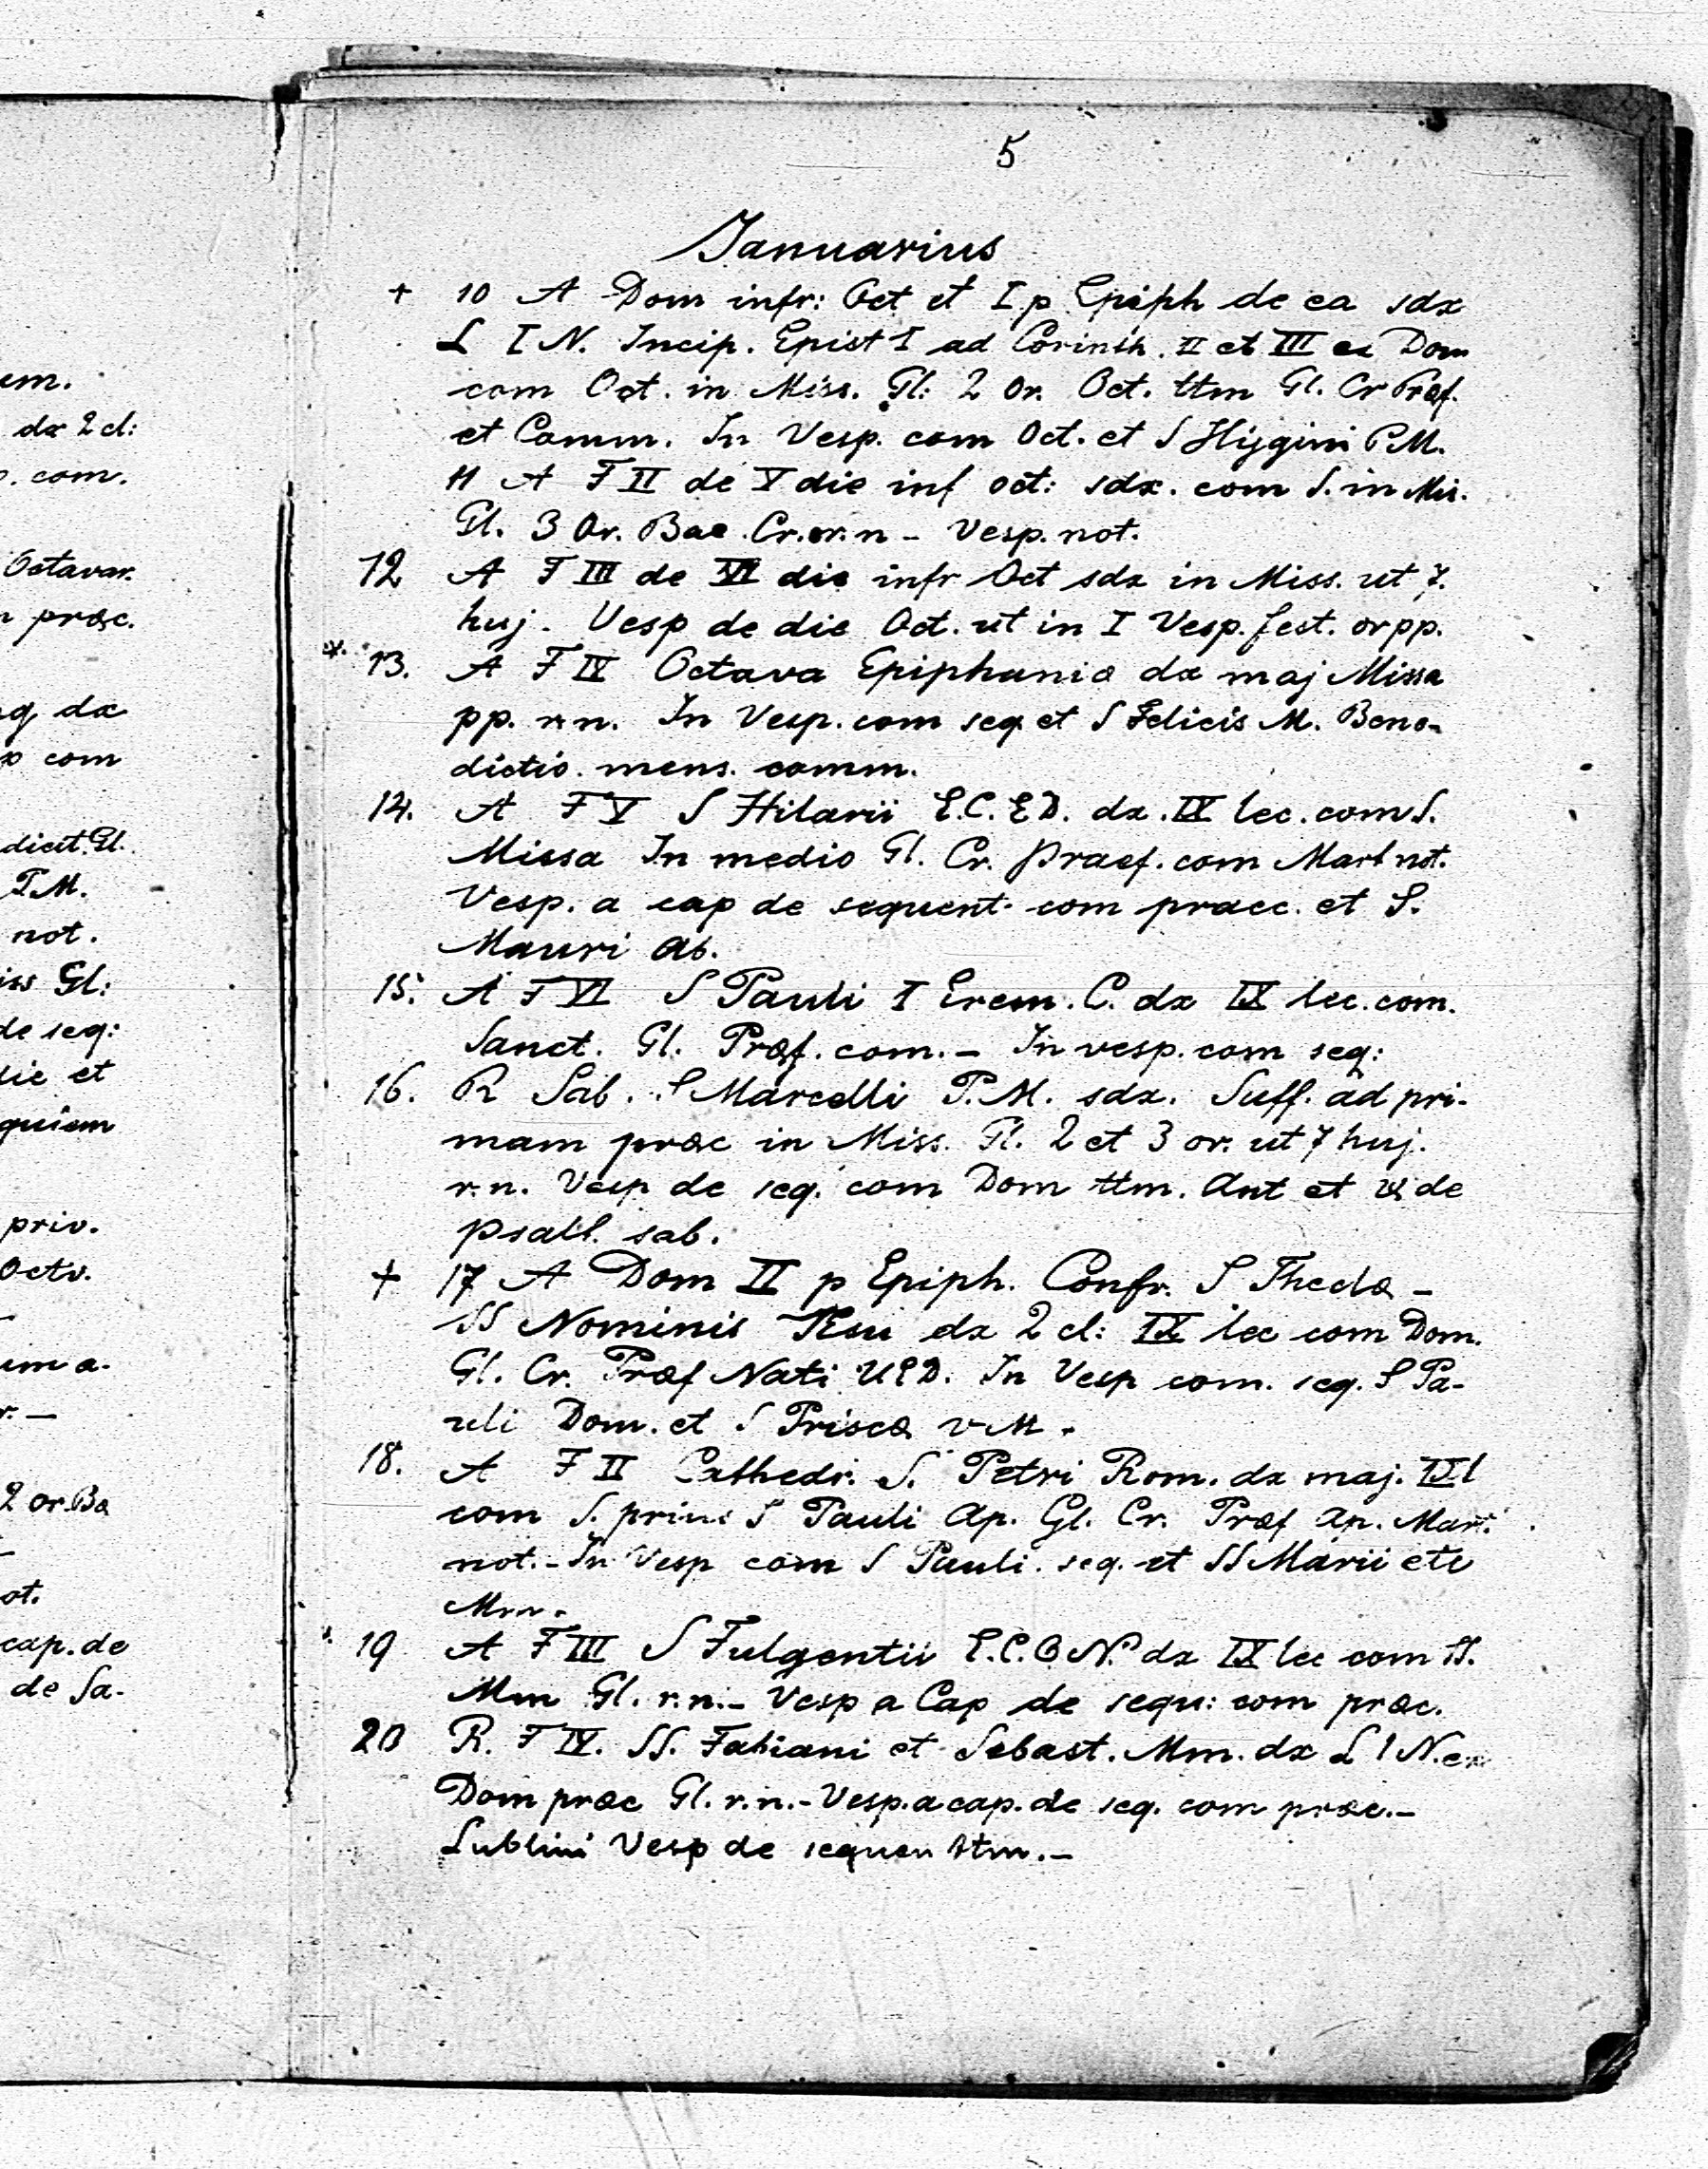 em.
dx 2 cl:
p. com.
Octavar.
præc.
dx
com
dicit. Gl.
P.M.
not.
Gl:
de seq:
die et
quiem
priv.
Octv.
2 or. Ba
cap. de
de Sa-
5
Januarius
+ 10 A Dom infr: Oct et I p Epiph de ea sdx
L I N. Incip. Epist I ad Corinth. II et III ex Dom
com Oct. in Miss. Gl: 2 or. Oct. ttm Gl. Cr Præf.
et Comm. In Vesp. com Oct. et S Hÿgini P.M.
11 A F II de V die inf oct: sdx. com S. in Mis.
Gl. 3 Or. Bae. Cr. or. n - Vesp. not.
12 A F III de VI die infr Oct sdx in Miss. ut 7.
huj. Vesp de die Oct. ut in I Vesp. fest. or pp.
*. 13. A F IV Octava Epiphaniæ dx maj Missa
pp. r. n. In Vesp. com seq et S Felicis M. Bene-
dictio. mens. comm.
14. A F V S Hilarii E.C.E D. dx. IX lec. com S.
Missa In medio Gl. Cr. Praef. com Mart not.
Vesp. a cap de sequent. com praec. et S.
Mauri Ab.
15. A F VI S Pauli I Erem. C. dx IX lec. com.
Sanct. Gl. Præf. com. - In vesp. com seq:
16. R Sab. S Marcelli P.M. sdx. Suff. ad pri-
mam præc in Miss. Gl. 2 et 3 or. ut 7 huj.
r. n. Vesp de seq. com Dom ttm. Ant et ℣ de
psalt. sab.
+ 17 A Dom II p Epiph. Confr. S Theclæ -
SS Nominis Jesu dx 2 cl: IX lec com Dom.
Gl. Cr. Præf Nati In Vesp com. seq. S Pa-
uli Dom. et S Priscæ V M.
18. A F II Cathedr. S. Petri Rom. dx maj. IX l
com S. prius S Pauli Ap. Gl. Cr. Præf Ap. Mart
not. - In Vesp com S Pauli. seq. et SS Marii etc
Mm.
19 A F III S Fulgentii E.C. O N. dx IX lec com SS.
Mm Gl. r. n. - Vesp a Cap de sequ: com præc.
20 R. F IV. SS. Fabiani et Sebast. Mm. dx L I N. ex
Dom præc Gl. r. n. - Vesp. a cap. de seq. com præc. -
Lublini Vesp de sequen ttm. -